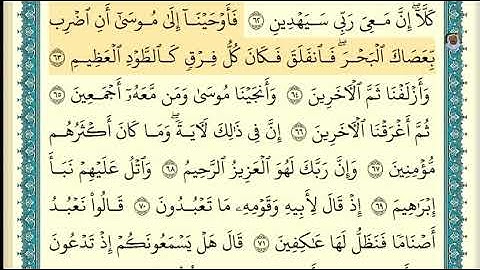 كَلَّآ ۖ إِنَّ مَعِىَ رَبِّى سَيَهْدِينِ ٦٢ فَأَوْحَيْنَآ إِلَىٰ مُوسَىٰٓ أَنِ ٱضْرِب
بِّعَصَاكَ ٱلْبَحْرَ ۖ فَٱنفَلَقَ فَكَانَ كُلُّ فِرْقٍ كَٱلطَّوْدِ ٱلْعَظِيمِ ٦٣
وَأَزْلَفْنَا ثَمَّ ٱلْءَاخَرِينَ ٦٤ وَأَنجَيْنَا مُوسَىٰ وَمَن مَّعَهُۥٓ أَجْمَعِينَ ٦٥
ثُمَّ أَغْرَقْنَا ٱلْءَاخَرِينَ ٦٦ إِنَّ فِى ذَٰلِكَ لَءَايَةً ۖ وَمَا كَانَ أَكْثَرُهُم
مُّؤْمِنِينَ ٦٧ وَإِنَّ رَبَّكَ لَهُوَ ٱلْعَزِيزُ ٱلرَّحِيمُ ٦٨ وَٱتْلُ عَلَيْهِمْ نَبَأَ
إِبْرَٰهِيمَ ٦٩ إِذْ قَالَ لِأَبِيهِ وَقَوْمِهِۦ مَا تَعْبُدُونَ ٧٠ قَالُوا۟ نَعْبُدُ
أَصْنَامًا فَنَظَلُّ لَهَا عَٰكِفِينَ ٧١ قَالَ هَلْ يَسْمَعُونَكُمْ إِذْ تَدْعُونَ